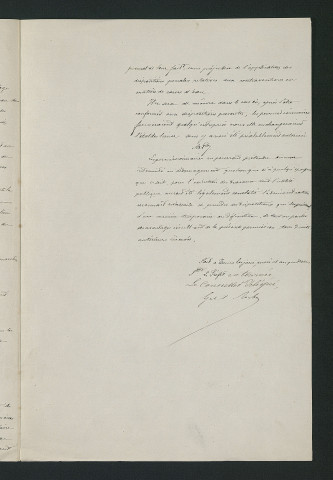 prendra de leur fait, sans préjudice de l'application des
dispositions pénales relatives aux contraventions en
matière de cours d'eau.
Il en sera de même dans le cas où, après s'être
conformé aux dispositions prescrites, le permissionnaire
formerait quelque entreprise nouvelle ou changerait
l'état des lieux sans y avoir été préalablement autorisé.
Art.
Le permissionnaire ne pourra prétendre aucune
indemnité ni dédommagement quelconque si, à quelque époque
que ce soit, pour l'exécution de travaux dont l'utilité
publique aura été légalement constatée, l'administration
reconnaît nécessaire de prendre des dispositions qui le privent
d'une manière temporaire ou définitive de tout ou partie
des avantages résultant de la présente permission, tous droits
antérieurs réservés.
Fait à Tours, le
Pr le Préfet en tournée
Le Conseiller délégué,